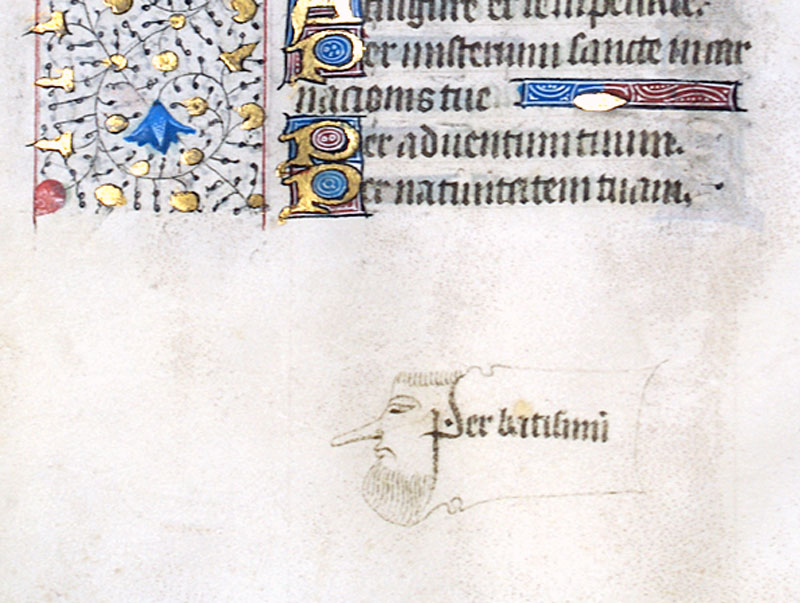 A fulgure et tempestate.
Per misterum sancte incar
nacionis tue
Per adventum tuum.
Per nativitatem tuam.
Per batismū